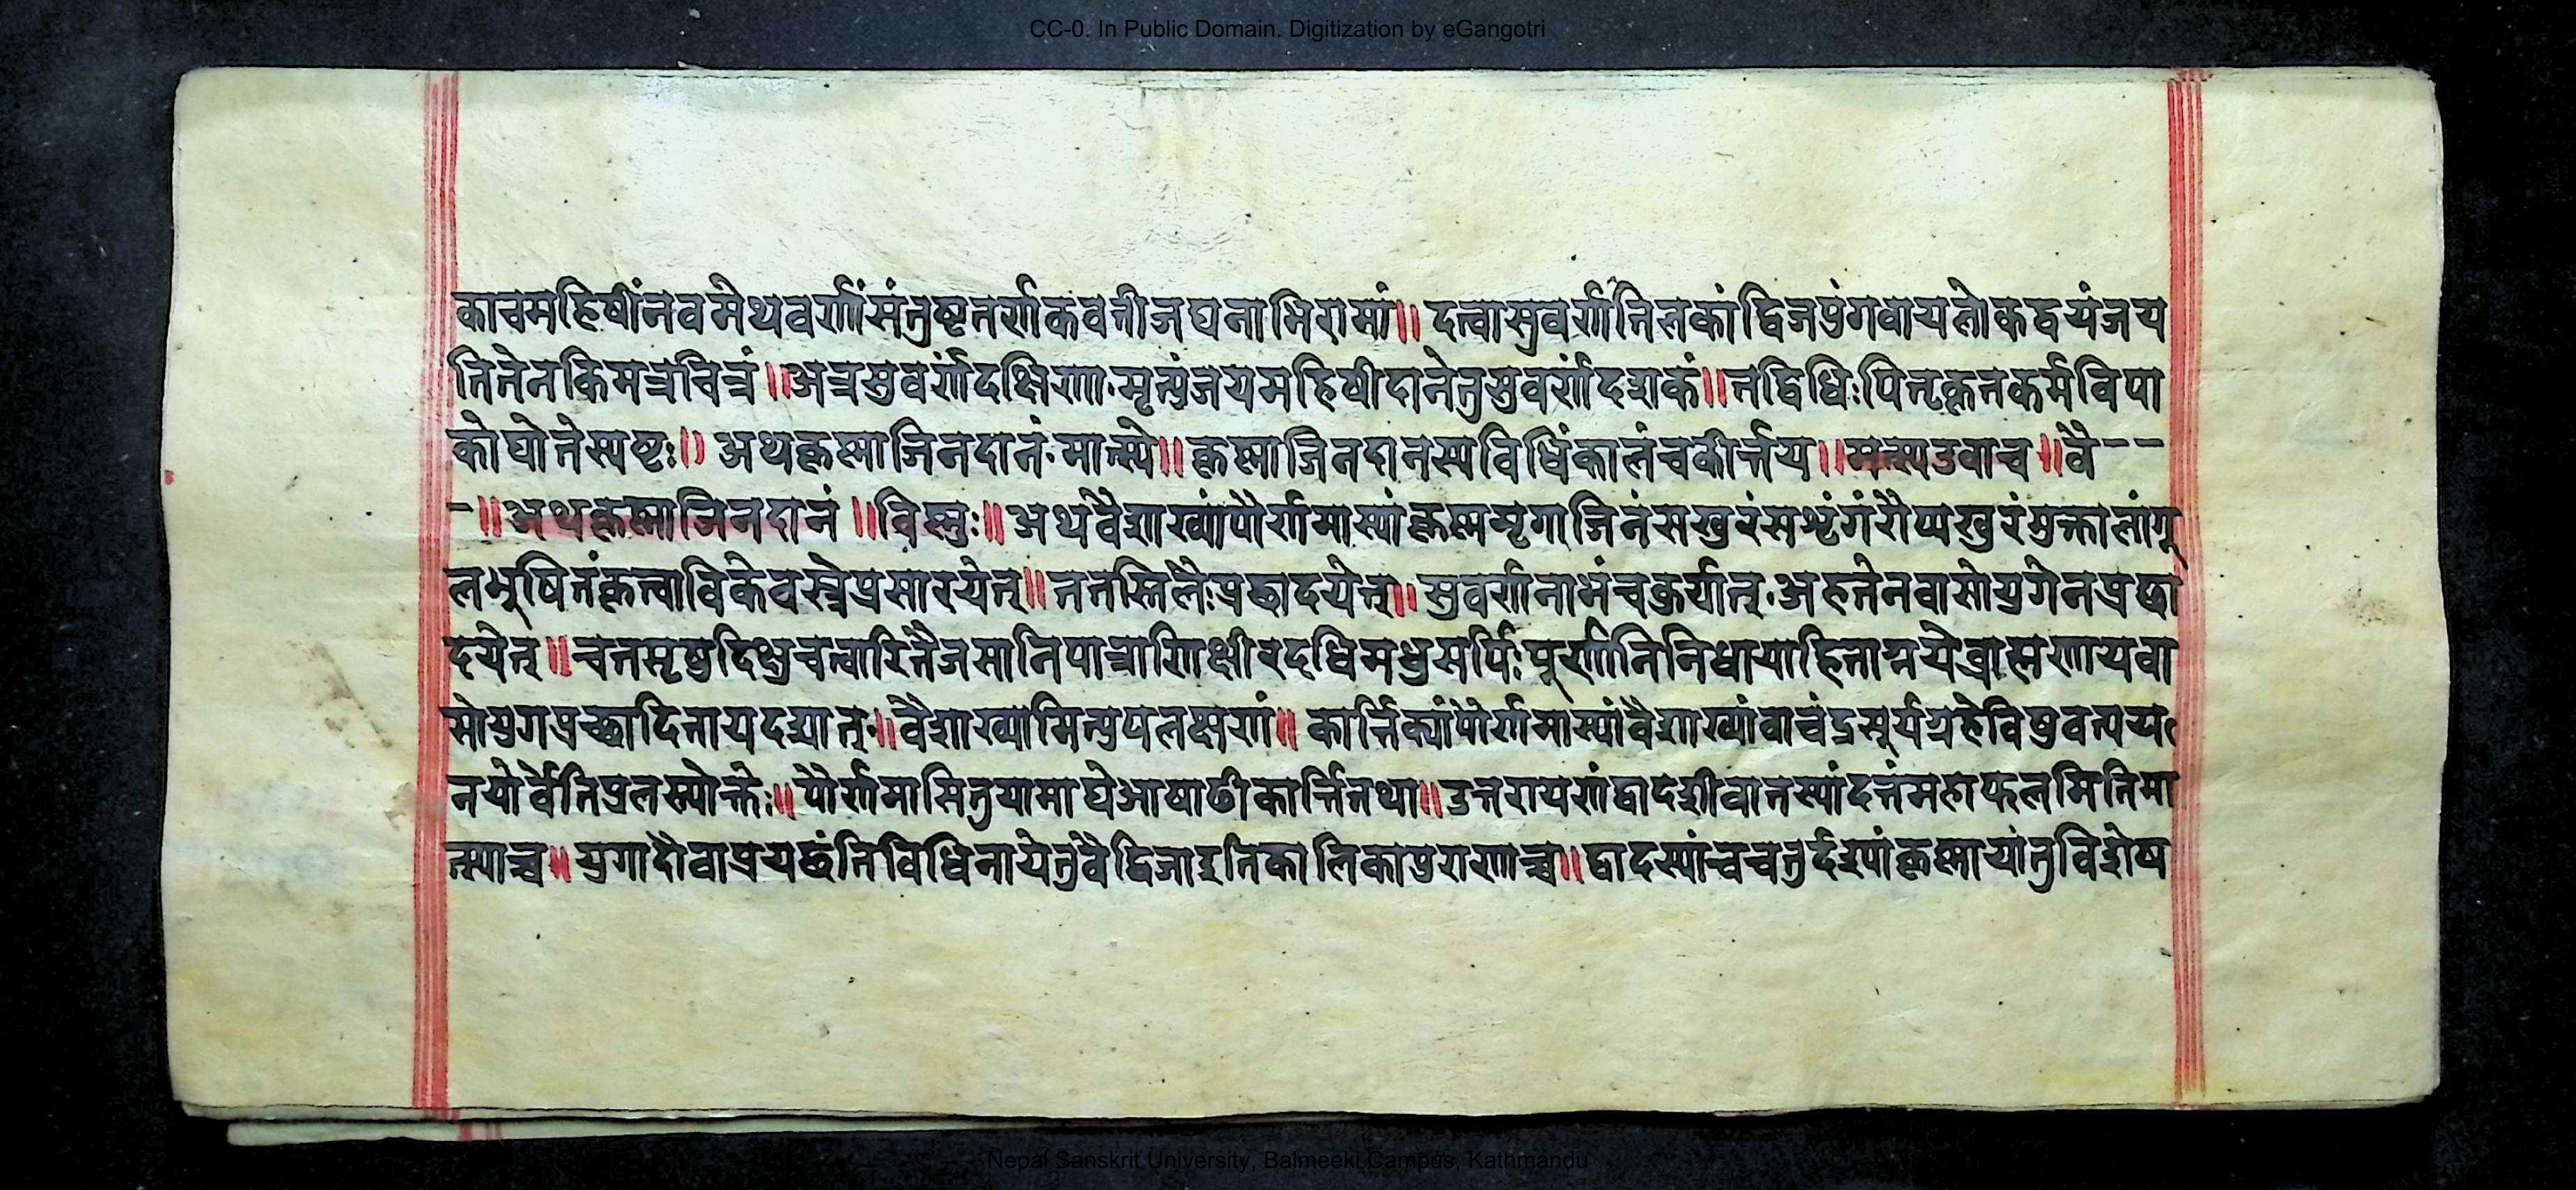 CC-0. In Public Domain. Digitization by eGangotri
काचमहिषींनवमेथवर्णींसंतुष्टतर्णकवतीजघनाभिरामां॥ दत्वासुवर्णतिलकांद्विजपुंगवायलोकद्वयंजय
तितेनकिमत्रचित्रं॥अत्रसुवर्णंदक्षिणा.मृत्युंजयमहिषीदानेतुसुवर्णंदशकं॥तद्विधिःपितृकृतकर्मविपा
कोघोतेस्पष्टः॥ अथकृष्णाजिनदानं.मात्स्ये॥कृष्णाजिनदानस्यविधिंकालंचकीर्त्तय॥मत्स्यउवाच॥वै--
-॥अथकृष्णाजिनदानं॥विष्णुः॥अथवैशाख्यांपौर्णमास्यांकृष्णमृगाजिनंसखुरंसशृंगंरौप्यखुरंमुक्तालांगू
लभूषितंकृत्वाविकेवस्त्रेप्रसारयेत्॥ततस्तिलैःप्रछादयेत्॥सुवर्णनाभंचकुर्यात्.अहतेनवासोयुगेनप्रछा
दयेत्॥चतसृषुदिक्षुचत्वारितैजसानिपात्राणिक्षीरदधिमधुसर्पिःपूर्णानिनिधायाहिताग्नयेब्राह्मणायवा
सोयुगप्रच्छादितायदद्यात्॥वैशाख्यामित्युपलक्षणं॥ कार्त्तिक्यांपौर्णमास्यांवैशाख्यांवाचंद्रसूर्यग्रहेविषुवत्यय
नयोर्वेतिपुलस्त्योक्तेः॥पौर्णमासितुयामाघेआषाढीकार्त्तितथा॥उत्तरायणंद्वादशीवातस्यांदत्तंमहाफलमितिमा
त्स्याच्च॥युगादौवाप्रयछंतिविधिनायेतुवैद्विजाइतिकालिकापुराणाच्च॥द्वादस्यांचचतुर्दश्यांकृष्णायांतुविशेष
Nepal Sanskrit University, Balmeeki Campus, Kathmandu